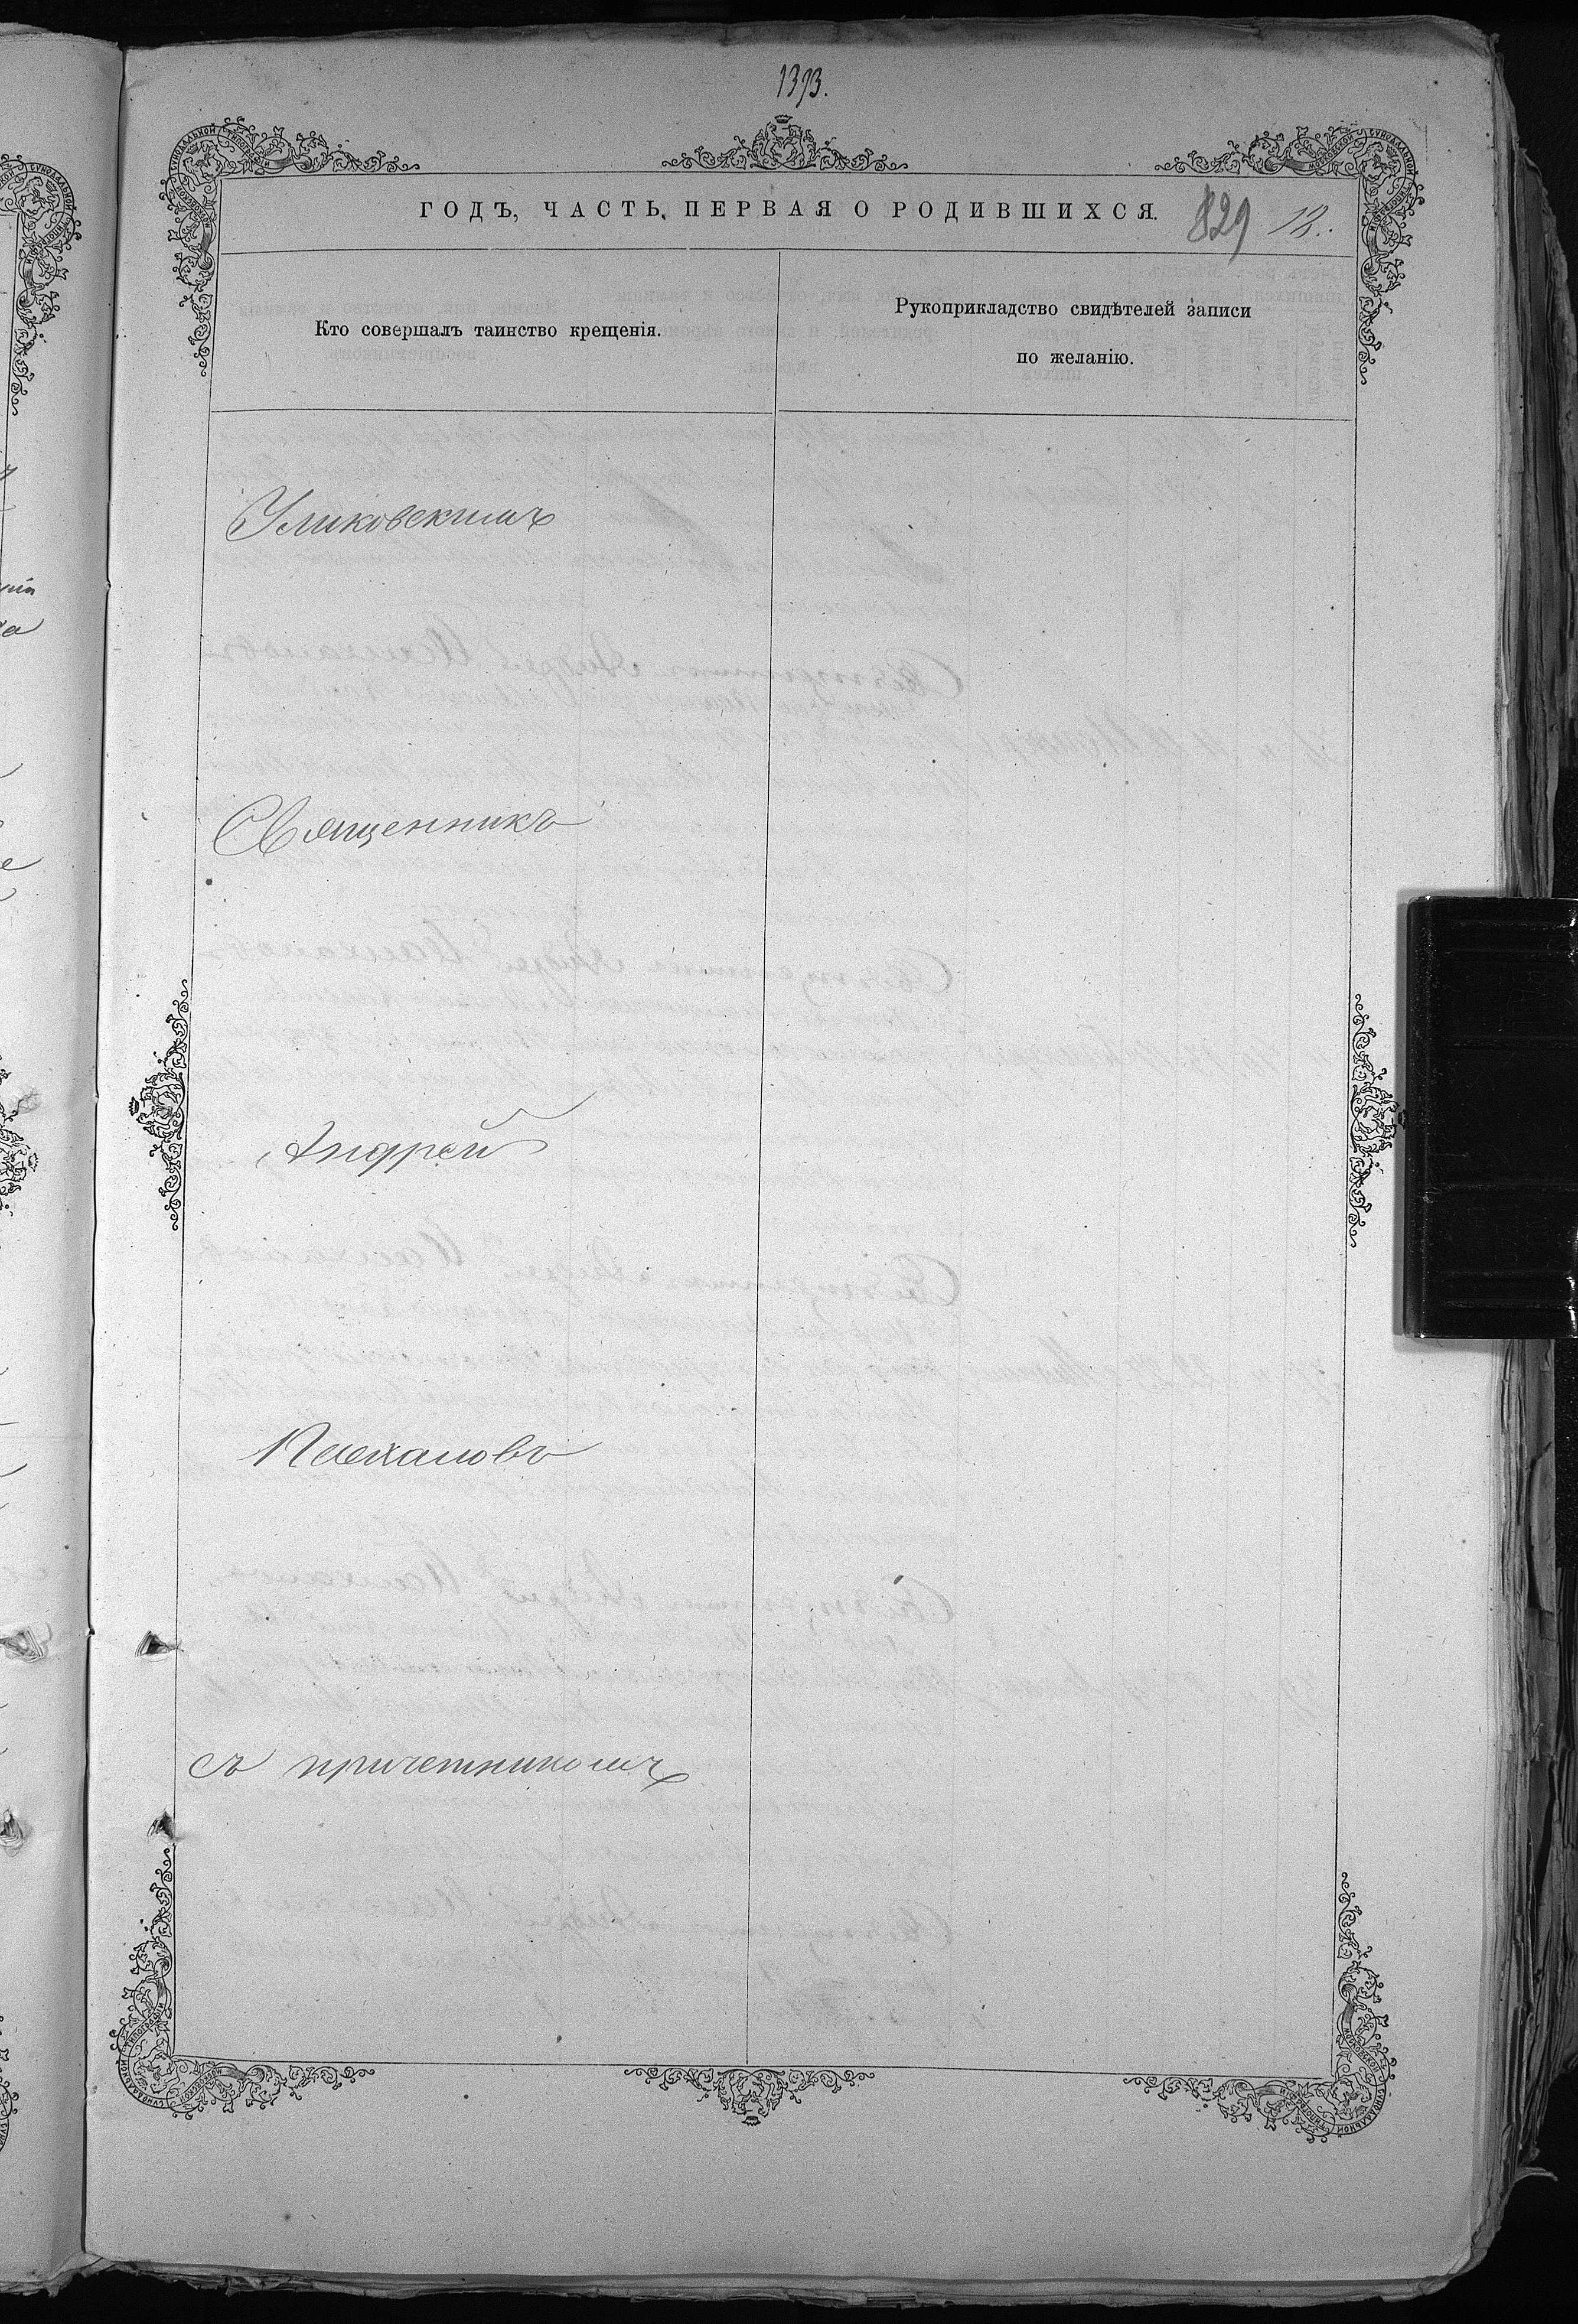 1393.
ГОДЪ, ЧАСТЬ ПЕРВАЯ О РОДИВШИХСЯ.
829 12.
Кто совершалъ таинство крещенія.
Рукоприкладство свидѣтелей записи
по желанію.
Священникъ
Андрей
Пасхаловъ
съ причетникомъ